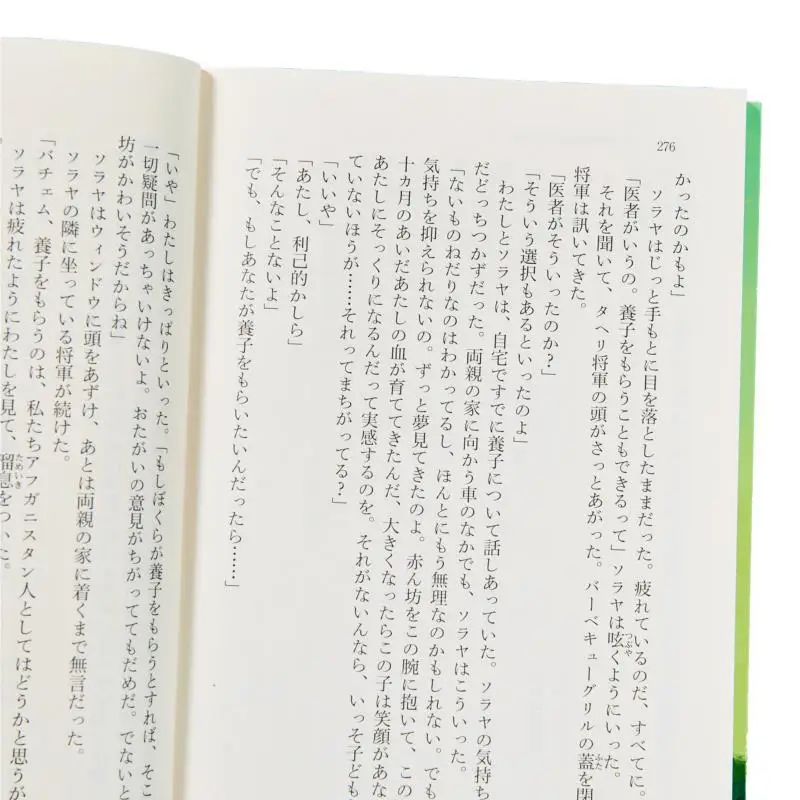 276
かったのかもよ」
ソラヤはじっと手もとに目を落としたままだった。疲れているのだ、すべてに。
「医者がいうの。養子をもらうこともできるって」ソラヤは呟くようにいった。
それを聞いて、タヘリ将軍の頭がさっとあがった。バーベキューグリルの蓋を閉
将軍は訊いてきた。
「医者がそういったのか?」
「そういう選択もあるといったのよ」
わたしとソラヤは、自宅ですでに養子について話しあっていた。ソラヤの気持ち
だどっちつかずだった。両親の家に向かう車のなかでも、ソラヤはこういった。
「ないものねだりなのはわかってるし、ほんとにもう無理なのかもしれない。でも
気持ちを抑えられないの。ずっと夢見てきたのよ。赤ん坊をこの腕に抱いて、この
十カ月のあいだあたしの血が育ててきたんだ、大きくなったらこの子は笑顔があな
あたしにそっくりになるんだって実感するのを。それがないんなら、いっそ子ども
ていないほうが……それってまちがってる?」
「いいや」
「あたし、利己的かしら」
「そんなことないよ」
「でも、もしあなたが養子をもらいたいんだったら……」
「いや」わたしはきっぱりといった。「もしぼくらが養子をもらうとすれば、そこ
一切疑問があっちゃいけないよ。おたがいの意見がちがっててもだめだ。でないと
坊がかわいそうだからね」
ソラヤはウィンドウに頭をあずけ、あとは両親の家に着くまで無言だった。
ソラヤの隣に坐っている将軍が続けた。
「バチェム、養子をもらうのは、私たちアフガニスタン人としてはどうかと思うが
ソラヤは疲れたようにわたしを見て、溜息をついた。